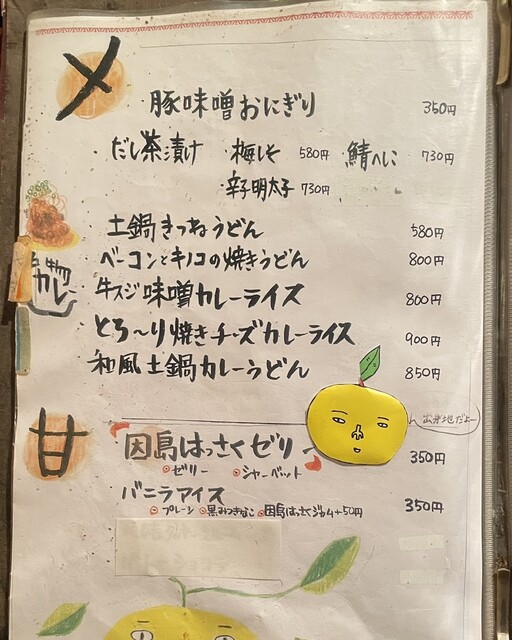 〆
豚味噌おにぎり 350円
だし茶漬け ・梅しそ 580円 鯖へしこ 730円
・辛子明太子 730円
土鍋きつねうどん 580円
ベーコンとキノコの焼きうどん 800円
名物カレー
牛スジ味噌カレーライス 800円
とろ〜り焼きチーズカレーライス 900円
和風土鍋カレーうどん 850円
出身地だよー
甘
因島はっさくゼリー 350円
ゼリー シャーベット
バニラアイス 350円
プレーン 黒みつきなこ 因島はっさくジャム+50円